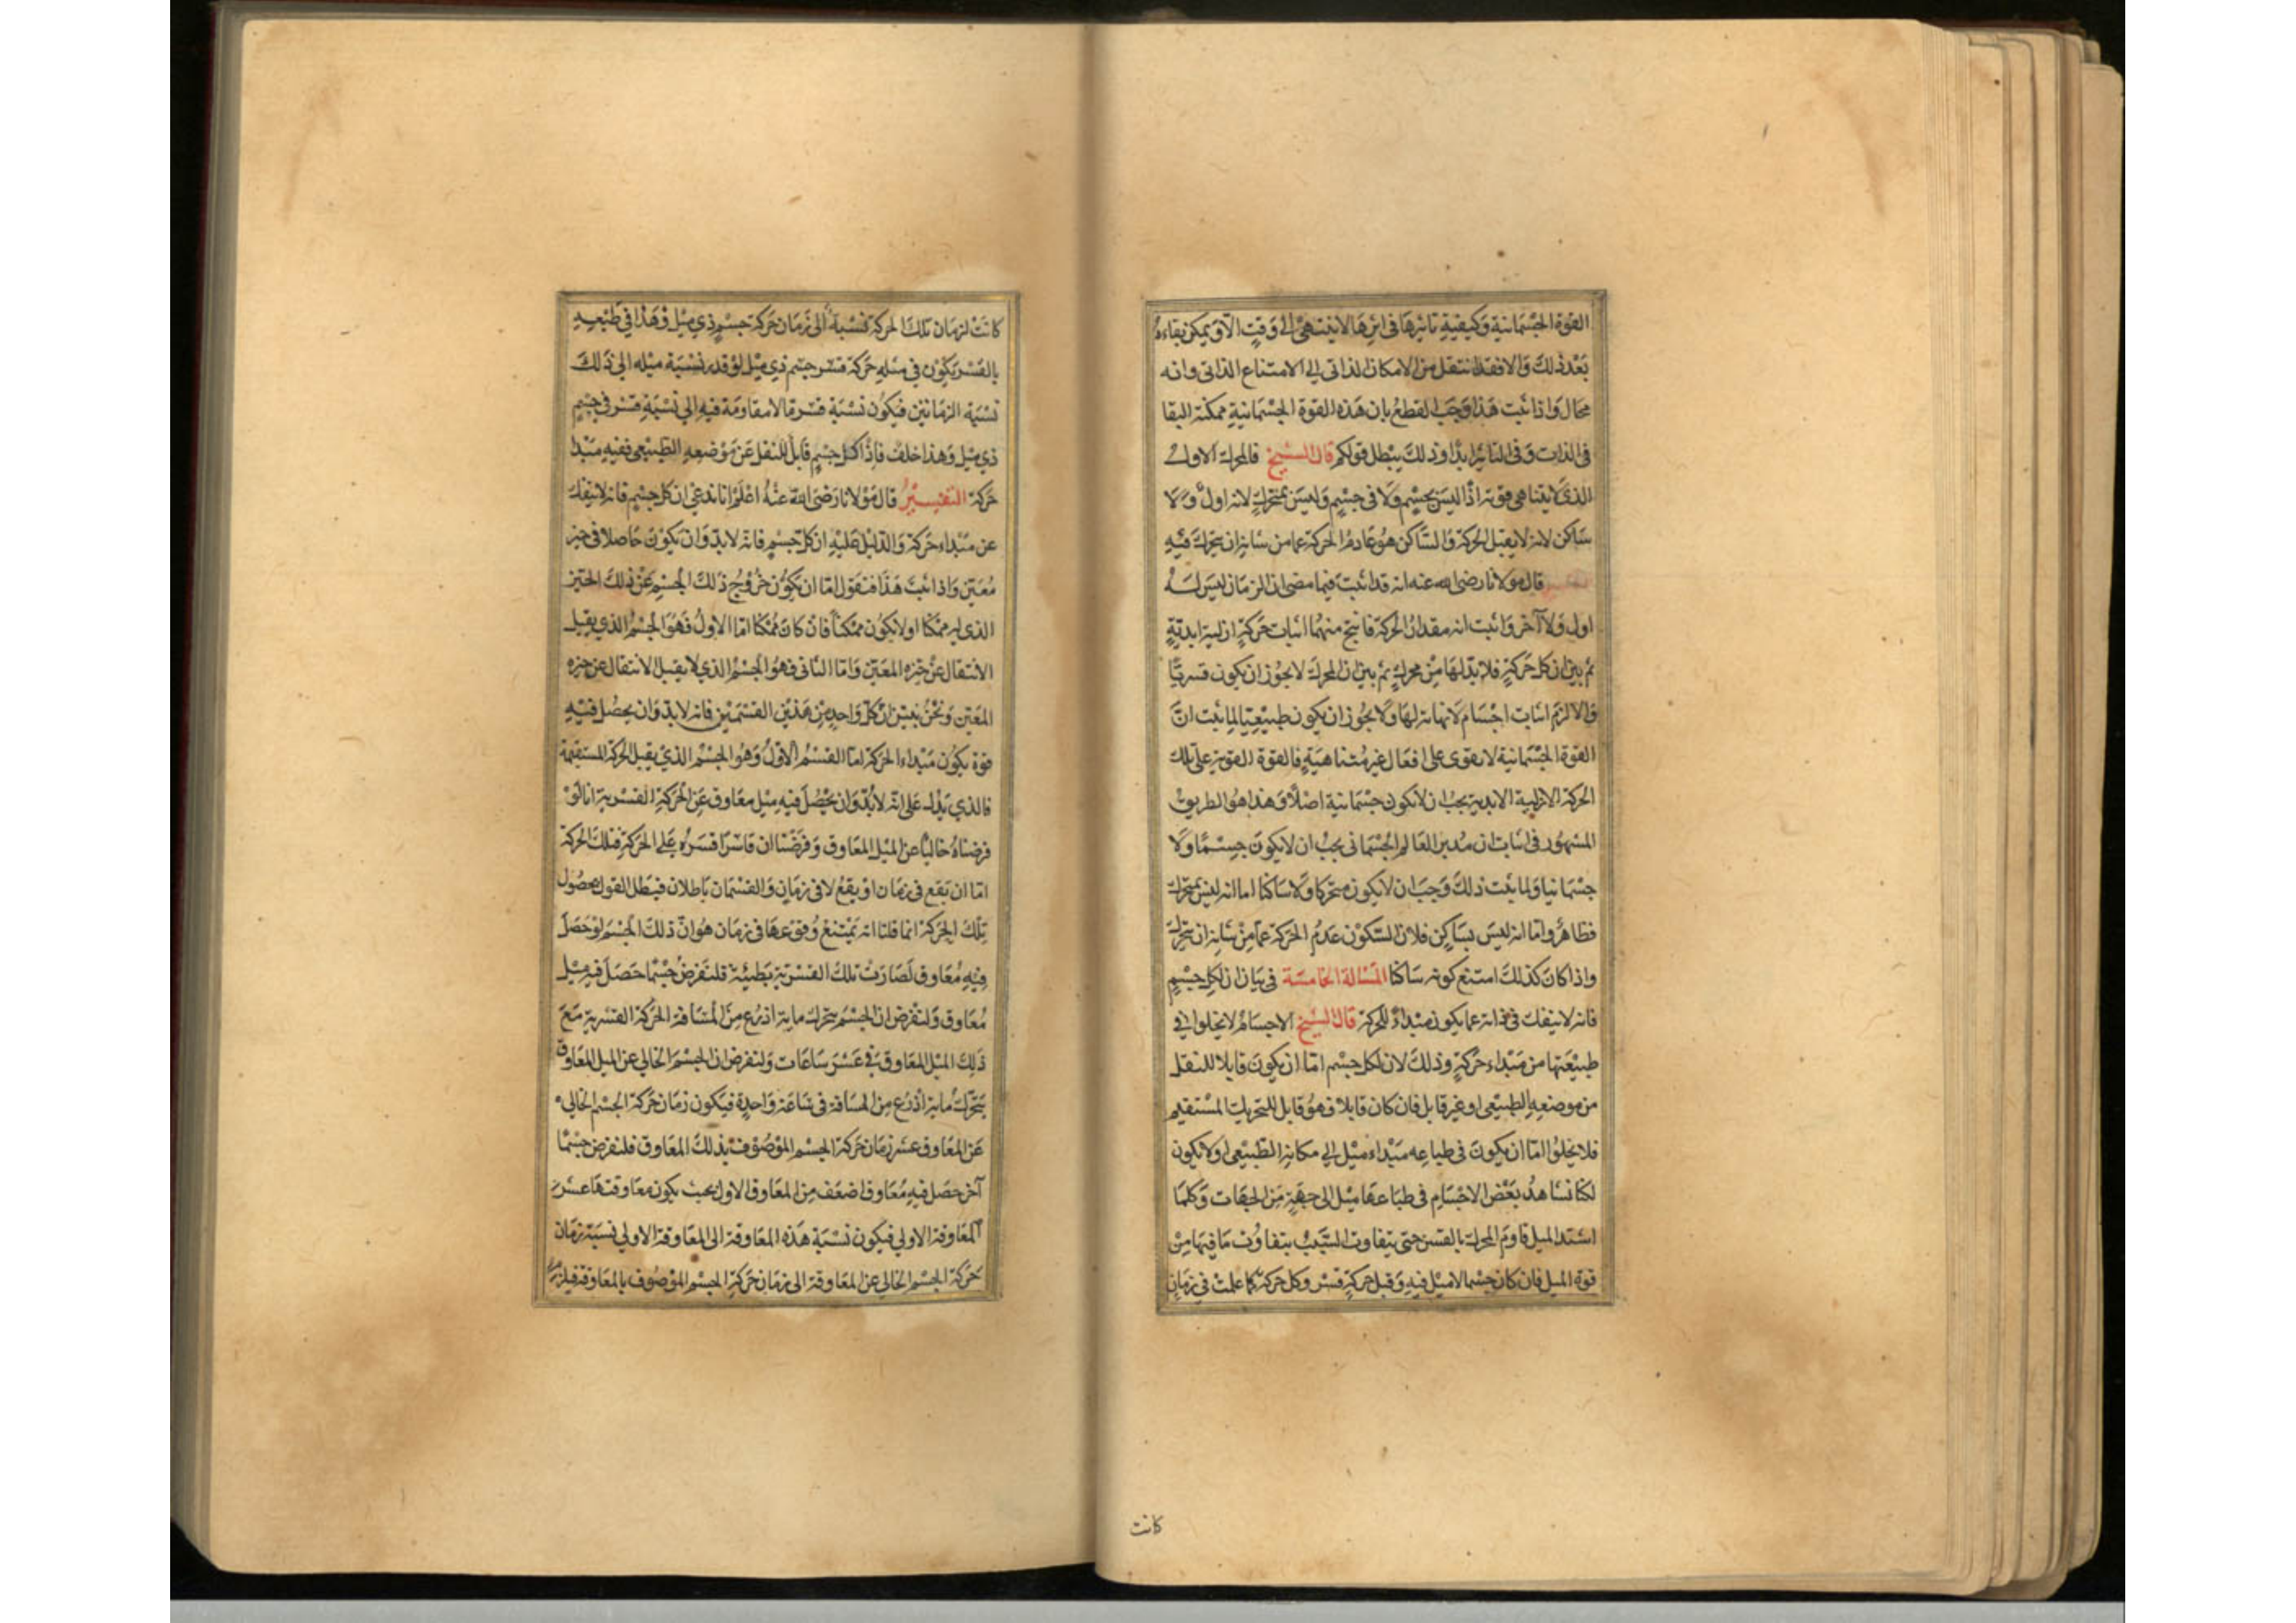 القوة الجسمانية وكيفية تاثيرها في اثرها لا ينتهي الى وقت الا ويمكن بقاءه
بعد ذلك والا فقد انتقل من الامكان الذاتى الى الامتناع الذاتى وانه
محال واذا ثبت هذا وجب القطع بان هذه القوة الجسمانية ممكنة البقا
فى الذات وفى التاثير ابدا وذلك يبطل قولكم قال الشيخ فالمحرك الاول
الذى لا يتناهى قوته اذا ليس بجسم ولا فى جسم وليس بمتحرك لانه اول ولا
ساكن لانه لا يقبل الحركة والساكن هو عادم الحركة عما من شانه ان يتحرك فيه
التفسير قال مولانا رضى الله عنه انه قد اثبت فيما مضى ان الزمان ليس له
اول ولا آخر واثبت انه مقدار الحركة فانتج منهما اثبات حركة ازلية ابدية
ثم بين ان كل حركة فلا بد لها من محرك ثم بين ان المحرك لا يجوز ان يكون قسريا
والا لزم اثبات اجسام لا نهاية لها ولا يجوز ان يكون طبيعيا لما ثبت ان
القوة الجسمانية لا تقوى على افعال غير متناهية فالقوة القوية على تلك
الحركة الازلية الابدية يجب ان لا تكون جسمانية اصلا وهذا هو الطريق
المشهور فى اثبات ان مدبر العالم الجسمانى يجب ان لا يكون جسما ولا
جسمانيا ولما ثبت ذلك وجب ان لا يكون متحركا ولا ساكنا اما انه ليس بمتحرك
فظاهر واما انه ليس بساكن فلان السكون عدم الحركة عما من شانه ان يتحرك
واذا كان كذلك امتنع كونه ساكنا المسالة الخامسة فى بيان ان لكل جسم
فانه لا ينفك فى ذاته عما يكون مبداء للحركة قال الشيخ الاجسام لا يخلوا فى
طبيعتها من مبداء حركة وذلك لان لكل جسم اما ان يكون قابلا للنقل
من موضعه الطبيعى او غير قابل فان كان قابلا فهو قابل للتحريك المستقيم
فلا يخلوا اما ان يكون فى طباعه مبداء ميل الى مكانه الطبيعى او لا يكون
لكنا نشاهد بعض الاجسام فى طباعها ميل الى جهة من الجهات وكلما
اشتد الميل قاوم المحرك بالقسر حتى يتفاوت السبب بتفاوت ما فيها من
قوة الميل فان كان جسما لا ميل فيه وقبل حركة قسر وكل حركة كما علمت فى زمان
كانت
كانت لزمان تلك الحركة نسبة الى زمان حركة جسم ذي ميل وهذا في طبعه
بالقسر يكون في مثله حركة قسر جسم ذي ميل لو قدر نسبة ميله الى ذلك
نسبة الزمانين فيكون نسبة قسر ما لا مقاومة فيه الى نسبة قسر في جسم
ذي ميل وهذا خلف فاذا كل جسم قابل للنقل عن موضعه الطبيعي ففيه مبدا
حركة التفسير قال مولانا رضى الله عنه اعلم انا ندعي ان كل جسم فانه لا ينفك
عن مبداء حركة والدليل عليه ان كل جسم فانه لا بد وان يكون حاصلا فى حيز
معين واذا ثبت هذا فنقول اما ان يكون خروج ذلك الجسم عن ذلك الحيز
الذى له ممكنا او لا يكون ممكنا فان كان ممكنا اما الاول فهو الجسم الذي يقبل
الانتقال عن حيزه المعين واما الثانى فهو الجسم الذي لا يقبل الانتقال عن حيزه
المعين ونحن نبين ان كل واحد من هذين القسمين فانه لا بد وان يحصل فيه
قوة يكون مبداء الحركة اما القسم الاول وهو الجسم الذي يقبل الحركة المستقيمة
فالذي يدل على انه لا بد وان يحصل فيه ميل معاوق عن الحركة القسرية انا لو
فرضناه خاليا عن الميل المعاوق وفرضنا ان قاسرا قسره على الحركة فتلك الحركة
اما ان يقع في زمان او يقع لا في زمان والقسمان باطلان فبطل القول بحصول
تلك الحركة انما قلنا انه يمتنع وقوعها فى زمان هو ان ذلك الجسم لو حصل
فيه معاوق لصارت تلك القسرية بطيئة فلنفرض جسما حصل فيه ميل
معاوق ولنفرض ان الجسم يتحرك ماية اذرع من المسافة الحركة القسرية مع
ذلك الميل المعاوق في عشر ساعات ولنفرض ان الجسم الخالي عن الميل المعاوق
يتحرك ماية اذرع من المسافة فى ساعة واحدة فيكون زمان حركة الجسم الخالي
عن المعاوق عشر زمان حركة الجسم الموصوف بذلك المعاوق فلنفرض جسما
آخر حصل فيه معاوق اضعف من المعاوق الاول بحيث يكون معاوقتها عشر
المعاوقة الاولي فيكون نسبة هذه المعاوقة الى المعاوقة الاولي نسبة زمان
حركة الجسم الخالي عن المعاوقة الى زمان حركة الجسم الموصوف بالمعاوقة فيلزم